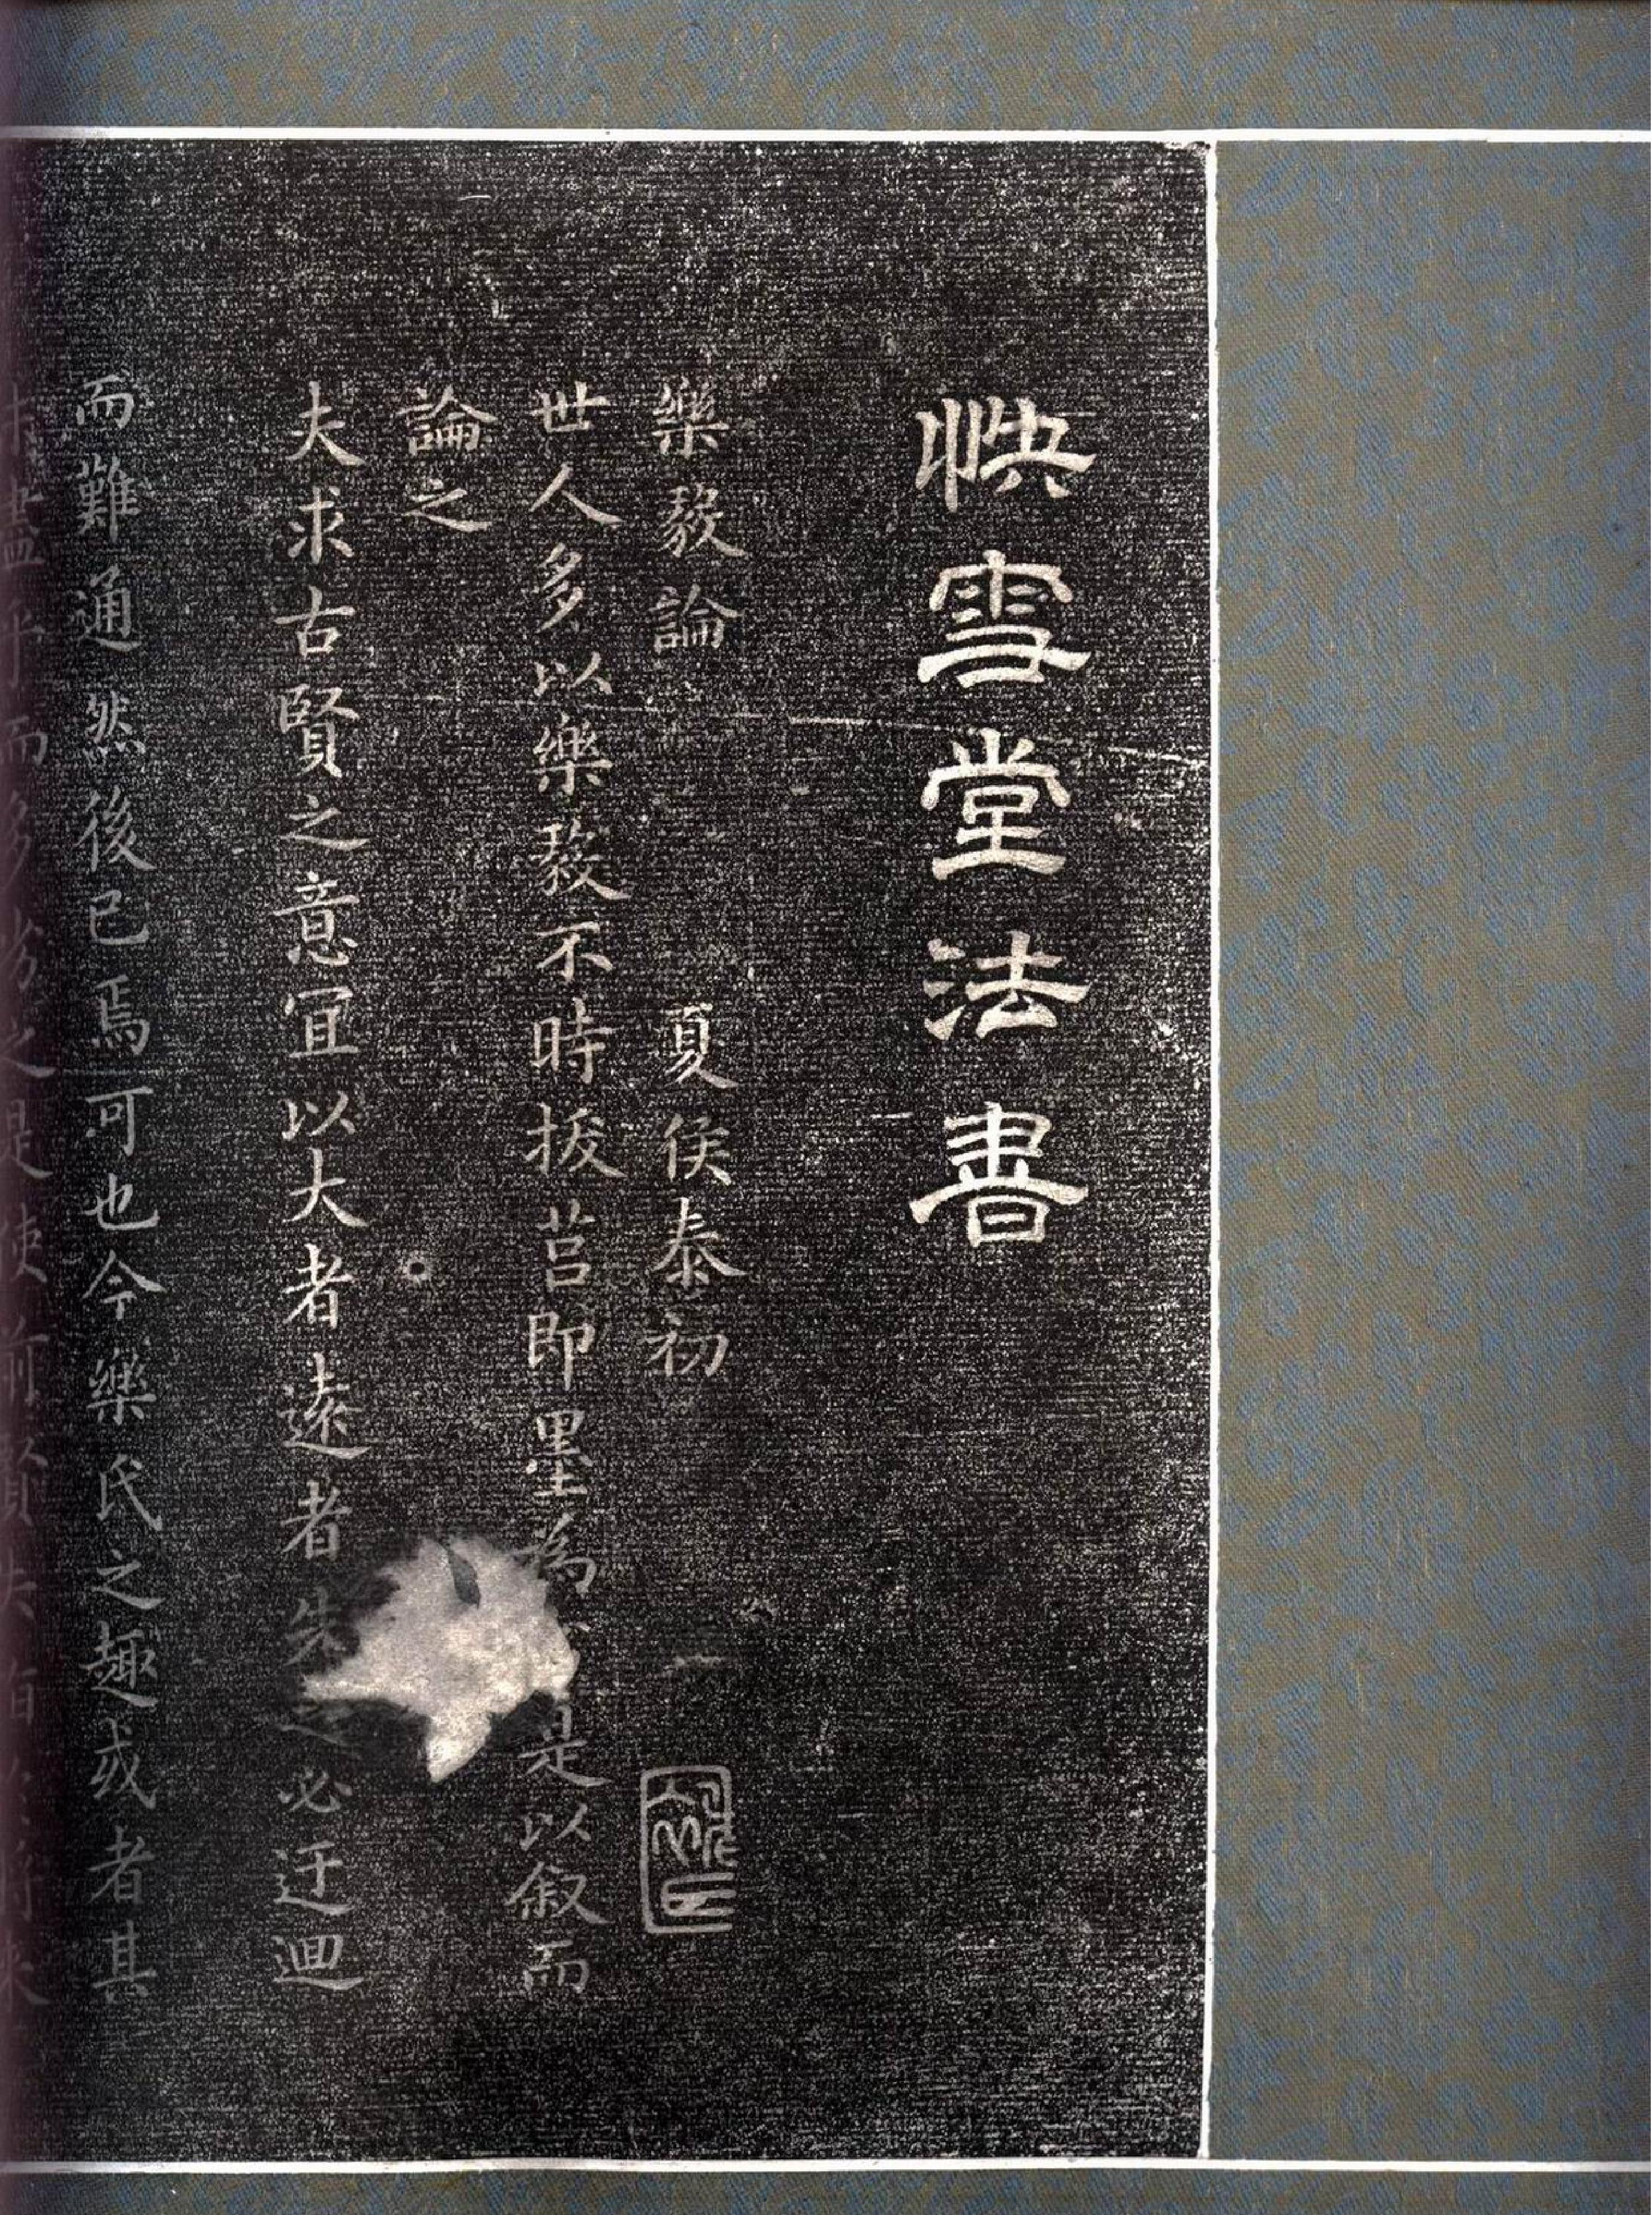 快雪堂法書
樂毅論 夏侯泰初
世人多以樂毅不時拔莒即墨為 是以叙而
論之
夫求古賢之意宜以大者遠者先之必迂迴
而難通然後已焉可也今樂氏之趣或者其
未盡乎而多劣之是使前賢失指 將來